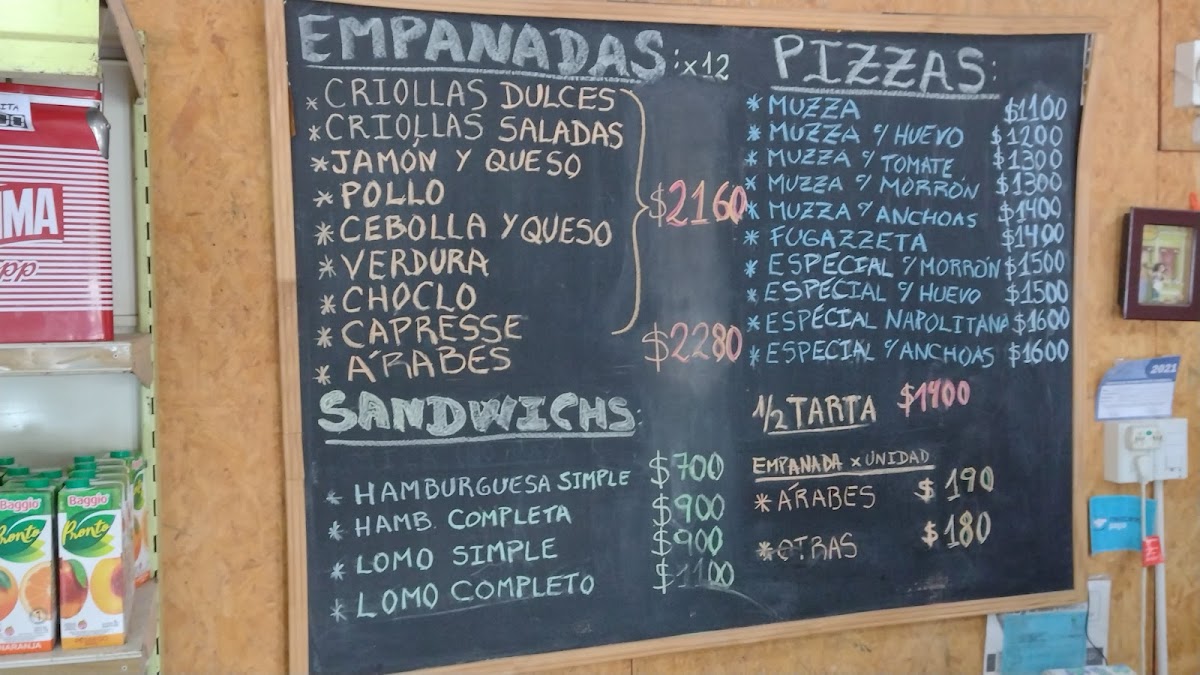 EMPANADAS: x12
* CRIOLLAS DULCES
* CRIOLLAS SALADAS
* JAMÓN Y QUESO
* POLLO
* CEBOLLA Y QUESO
* VERDURA
* CHOCLO
* CAPRESSE
$2160
* ÁRABES $2280
SANDWICHS:
* HAMBURGUESA SIMPLE $700
* HAMB. COMPLETA $900
* LOMO SIMPLE $900
* LOMO COMPLETO $1100
PIZZAS:
* MUZZA $1100
* MUZZA c/ HUEVO $1200
* MUZZA c/ TOMATE $1300
* MUZZA c/ MORRÓN $1300
* MUZZA c/ ANCHOAS $1400
* FUGAZZETA $1400
* ESPECIAL c/ MORRÓN $1500
* ESPECIAL c/ HUEVO $1500
* ESPECIAL NAPOLITANA $1600
* ESPECIAL c/ ANCHOAS $1600
1/2 TARTA $1400
EMPANADA x UNIDAD
* ÁRABES $190
* OTRAS $180
Baggio
Pronto
NARANJA
Baggio
Pronto
2021